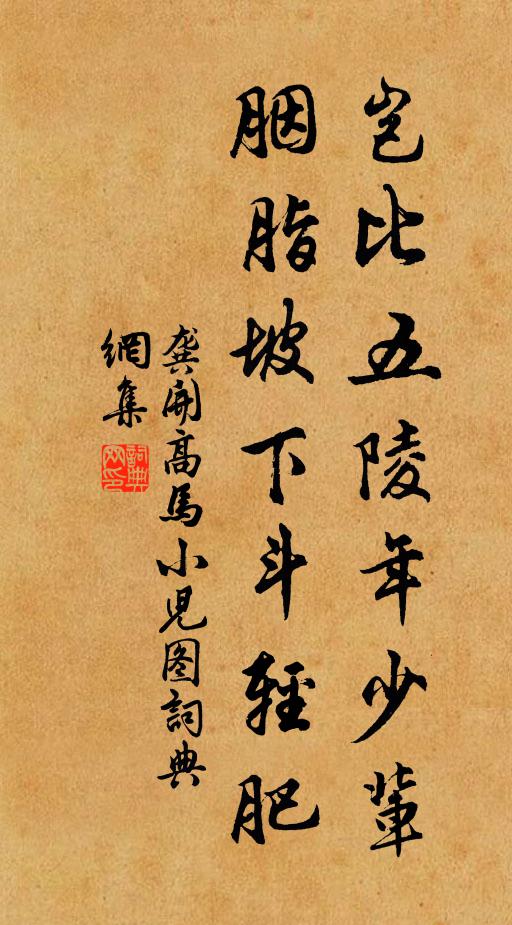 豈比五陵年少輩
胭脂坡下斗輕肥
龔開高馬小児图詞典
網集
詞典
网印